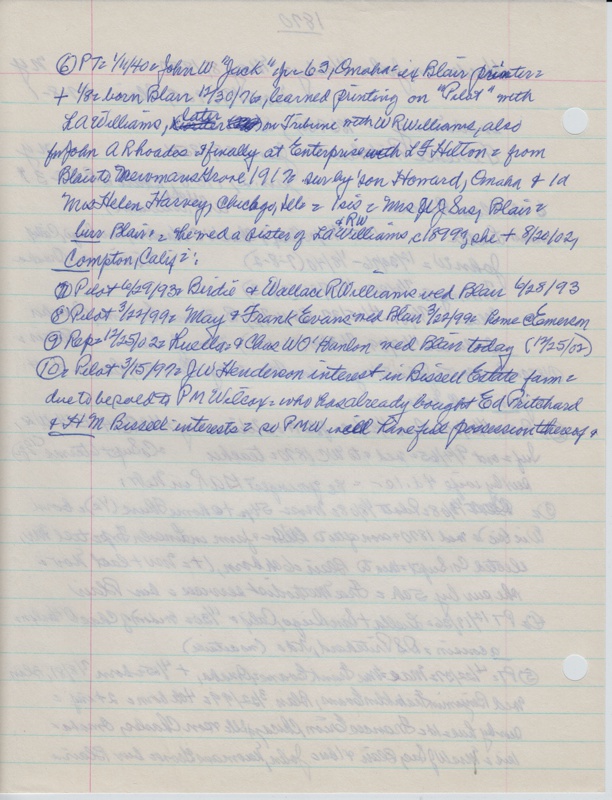 1870
⑥ PT= 1/11/40= John W "Jack" 63, Omaha= ex Blair printer=
+ 1/8= born Blair 12/30/76, learned printing on "Pilot" with
LA Williams, later on Tribune with WR Williams, also
for John A Rhoades & finally at Enterprise with L F Hilton = from
Blair to Newmans Grove 1917= surv by son Howard, Omaha & 1d
Mrs Helen Harvey, Chicago, Ills = 1 sis = Mrs JJ Sas, Blair=
bur Blair = he wed a sister of LA & RW Williams, c1899, she + 8/20/02,
Compton, Calif =:
⑦ Pilot 6/29/93= Birdie & Wallace R Williams wed Blair 6/28/93
⑧ Pilot 3/24/99= May & Frank Evans wed Blair 3/22/99= home c Emerson
⑨ Rep= 12/25/02= Luella & Chas W O'Hanlon wed Blair today (12/25/02)
⑩ = Pilot 3/15/97= JW Henderson interest in Bissell Estate farm=
due to be sold to PM Wilcox= who has already bought Ed Pritchard
& H M Bissell interests = so PMW will have full possession thereof &